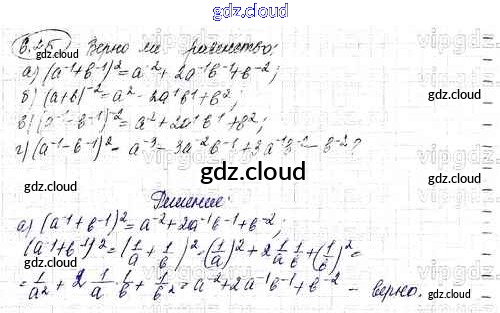 gdz.cloud
6.25 Верно ли равенство:
а) (a⁻¹+b⁻¹)² = a⁻² + 2a⁻¹b⁻¹ + b⁻²;
б) (a+b)⁻² = a² - 2a¹b¹ + b²;
в) (a⁻¹-b⁻¹)⁻² = a² + 2a¹b¹ + b²;
г) (a⁻¹-b⁻¹)² = a⁻³ - 3a⁻²b⁻¹ + 3a⁻¹b⁻² - b⁻²?
gdz.cloud
Решение:
а) (a⁻¹+b⁻¹)² = a⁻² + 2a⁻¹b⁻¹ + b⁻²;
(a⁻¹+b⁻¹)² = (1/a + 1/b)² = (1/a)² + 2 1/a 1/b + (1/b)² =
= 1/a² + 2 1/a 1/b + 1/b² = a⁻² + 2a⁻¹b⁻¹ + b⁻² - верно.
gdz.cloud